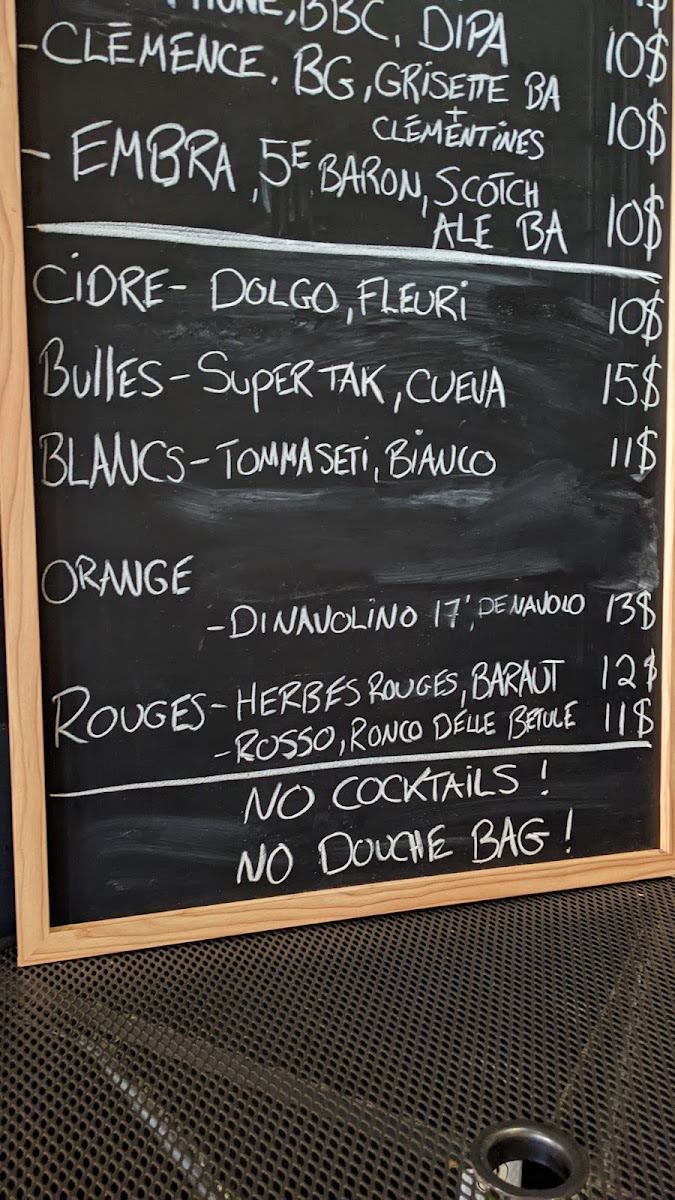 BBC, DIPA 10$
-CLÉMENCE. BG, GRISETTE BA
+
CLÉMENTINES 10$
- EMBRA, 5E BARON, SCOTCH
ALE BA 10$
CIDRE- DOLGO, FLEURI 10$
BULLES- SUPER TAK, CUEVA 15$
BLANCS- TOMMASETI, BIANCO 11$
ORANGE
-DINAVOLINO 17', DENAVOLO 13$
ROUGES- HERBES ROUGES, BARAUT 12$
- ROSSO, RONCO DELLE BETULE 11$
NO COCKTAILS !
NO DOUCHE BAG !